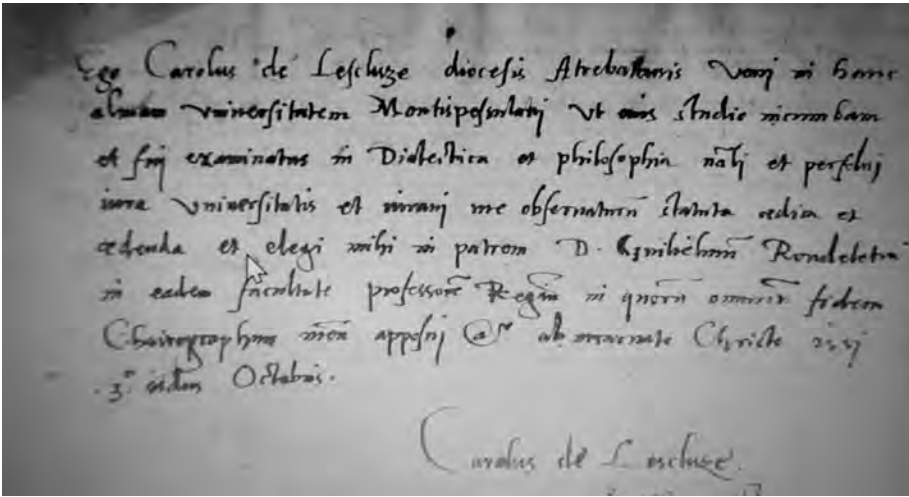 Ego Carolus de Lescluze diocesis Atrebatensis veni in hanc
almam universitatem Montispessulani ut eius studio incumbam
et fui examinatus in Dialectica et philosophia nāli et persolui
iura universitatis et iuraui me obseruaturū statuta edita et
edenda et elegi mihi in patrem D. Guilielmū Rondeletiū
in eadem facultate professorē Regiū in quorū omniū fidem
Chairographum meū apposui ab incarnato Christo 1551
.3.º idus Octobris.
Carolus de Lescluze.